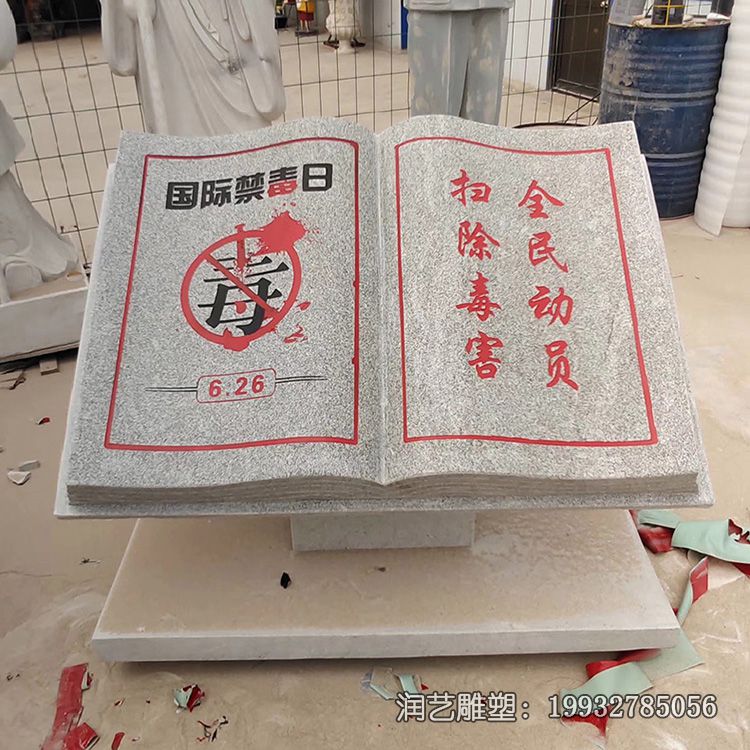 国际禁毒日
毒
6.26
全民动员
扫除毒害
润艺雕塑：19932785056